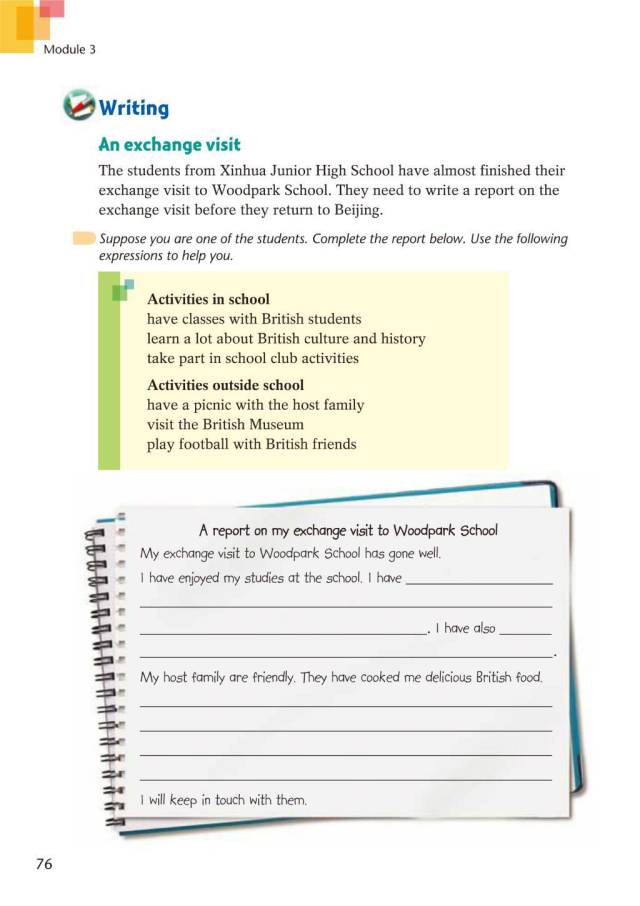 Module 3
Writing
An exchange visit
The students from Xinhua Junior High School have almost finished their
exchange visit to Woodpark School. They need to write a report on the
exchange visit before they return to Beijing.
Suppose you are one of the students. Complete the report below. Use the following
expressions to help you.
Activities in school
have classes with British students
learn a lot about British culture and history
take part in school club activities
Activities outside school
have a picnic with the host family
visit the British Museum
play football with British friends
A report on my exchange visit to Woodpark School
My exchange visit to Woodpark School has gone well.
I have enjoyed my studies at the school. I have ____________
____________
____________. I have also ____________
____________.
My host family are friendly. They have cooked me delicious British food.
____________
____________
____________
____________
I will keep in touch with them.
76